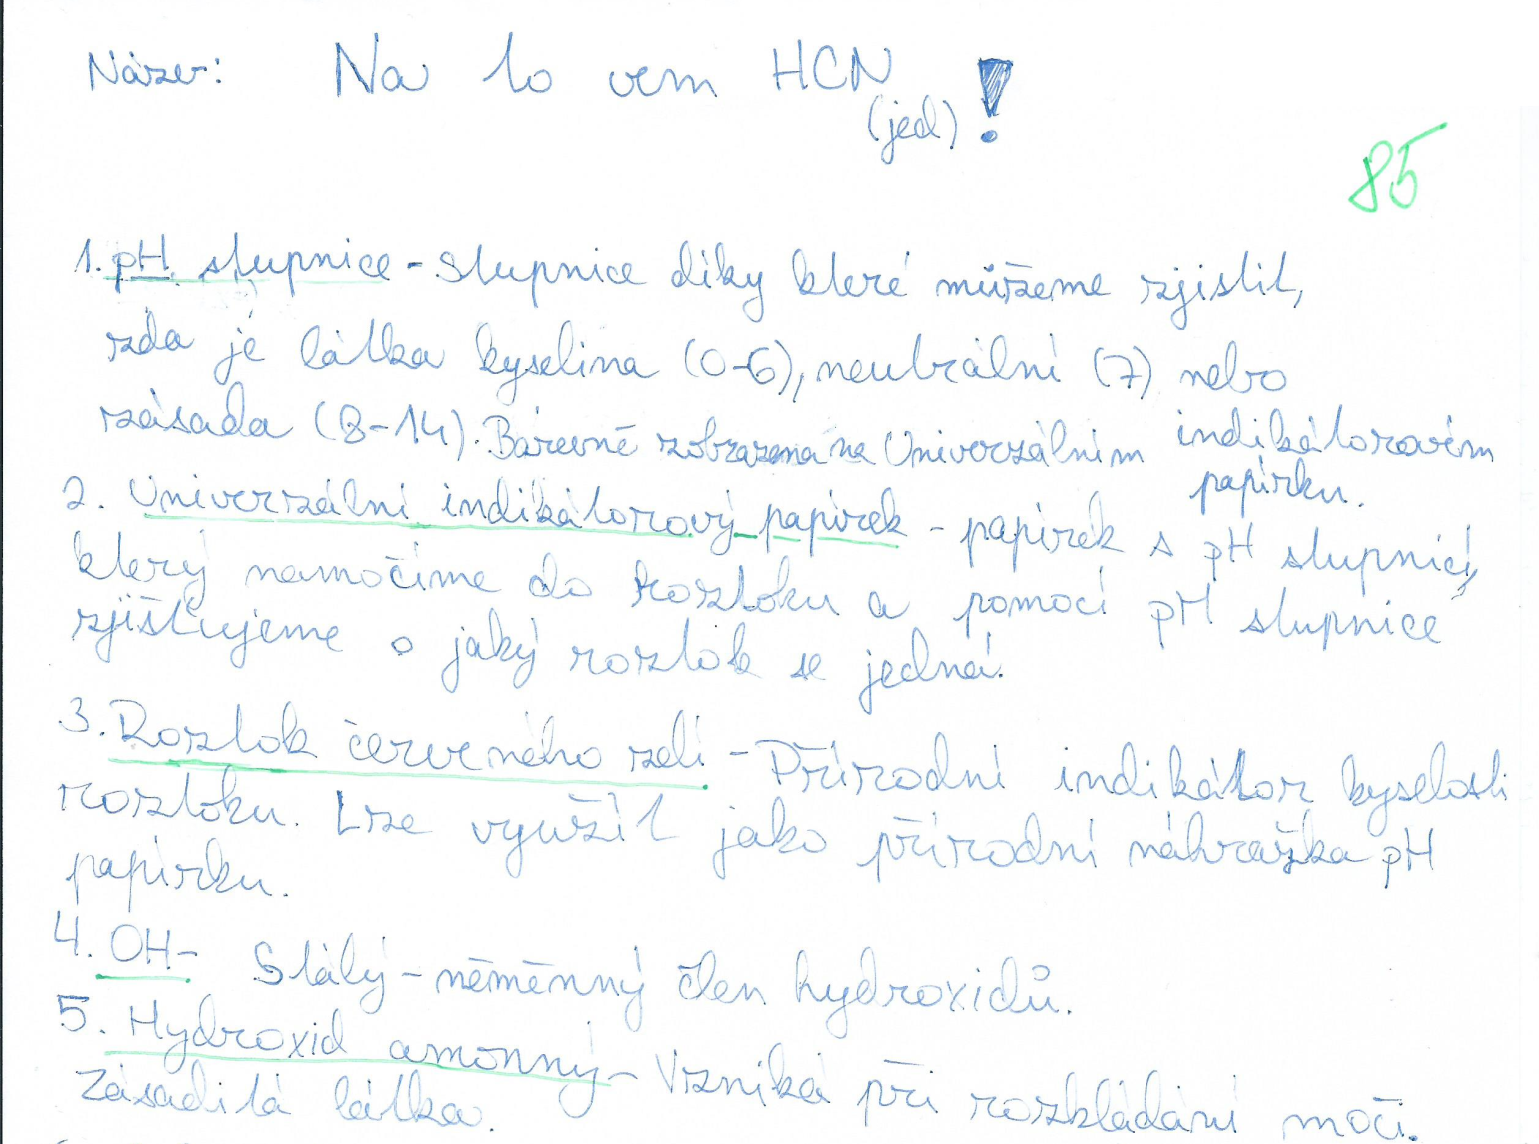 Název: Na to vem HCN !
(jed)
85
1. pH stupnice - Stupnice díky které můžeme zjistit,
zda je látka kyselina (0-6), neutrální (7) nebo
zásada (8-14). Barevně zobrazena na Univerzálním indikátorovém
papírku.
2. Univerzální indikátorový papírek - papírek s pH stupnicí,
který namočíme do roztoku a pomocí pH stupnice
zjišťujeme o jaký roztok se jedná.
3. Roztok červeného zelí - Přírodní indikátor kyselosti
roztoku. Lze využít jako přírodní náhražka pH
papírku.
4. OH- Stálý - něměnný člen hydroxidů.
5. Hydroxid amonný - Vzniká při rozkládání moči.
Zásaditá látka.